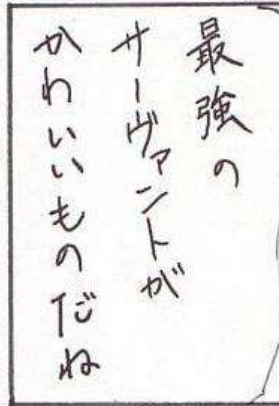 最強の
サーヴァントが
かわいいものだね